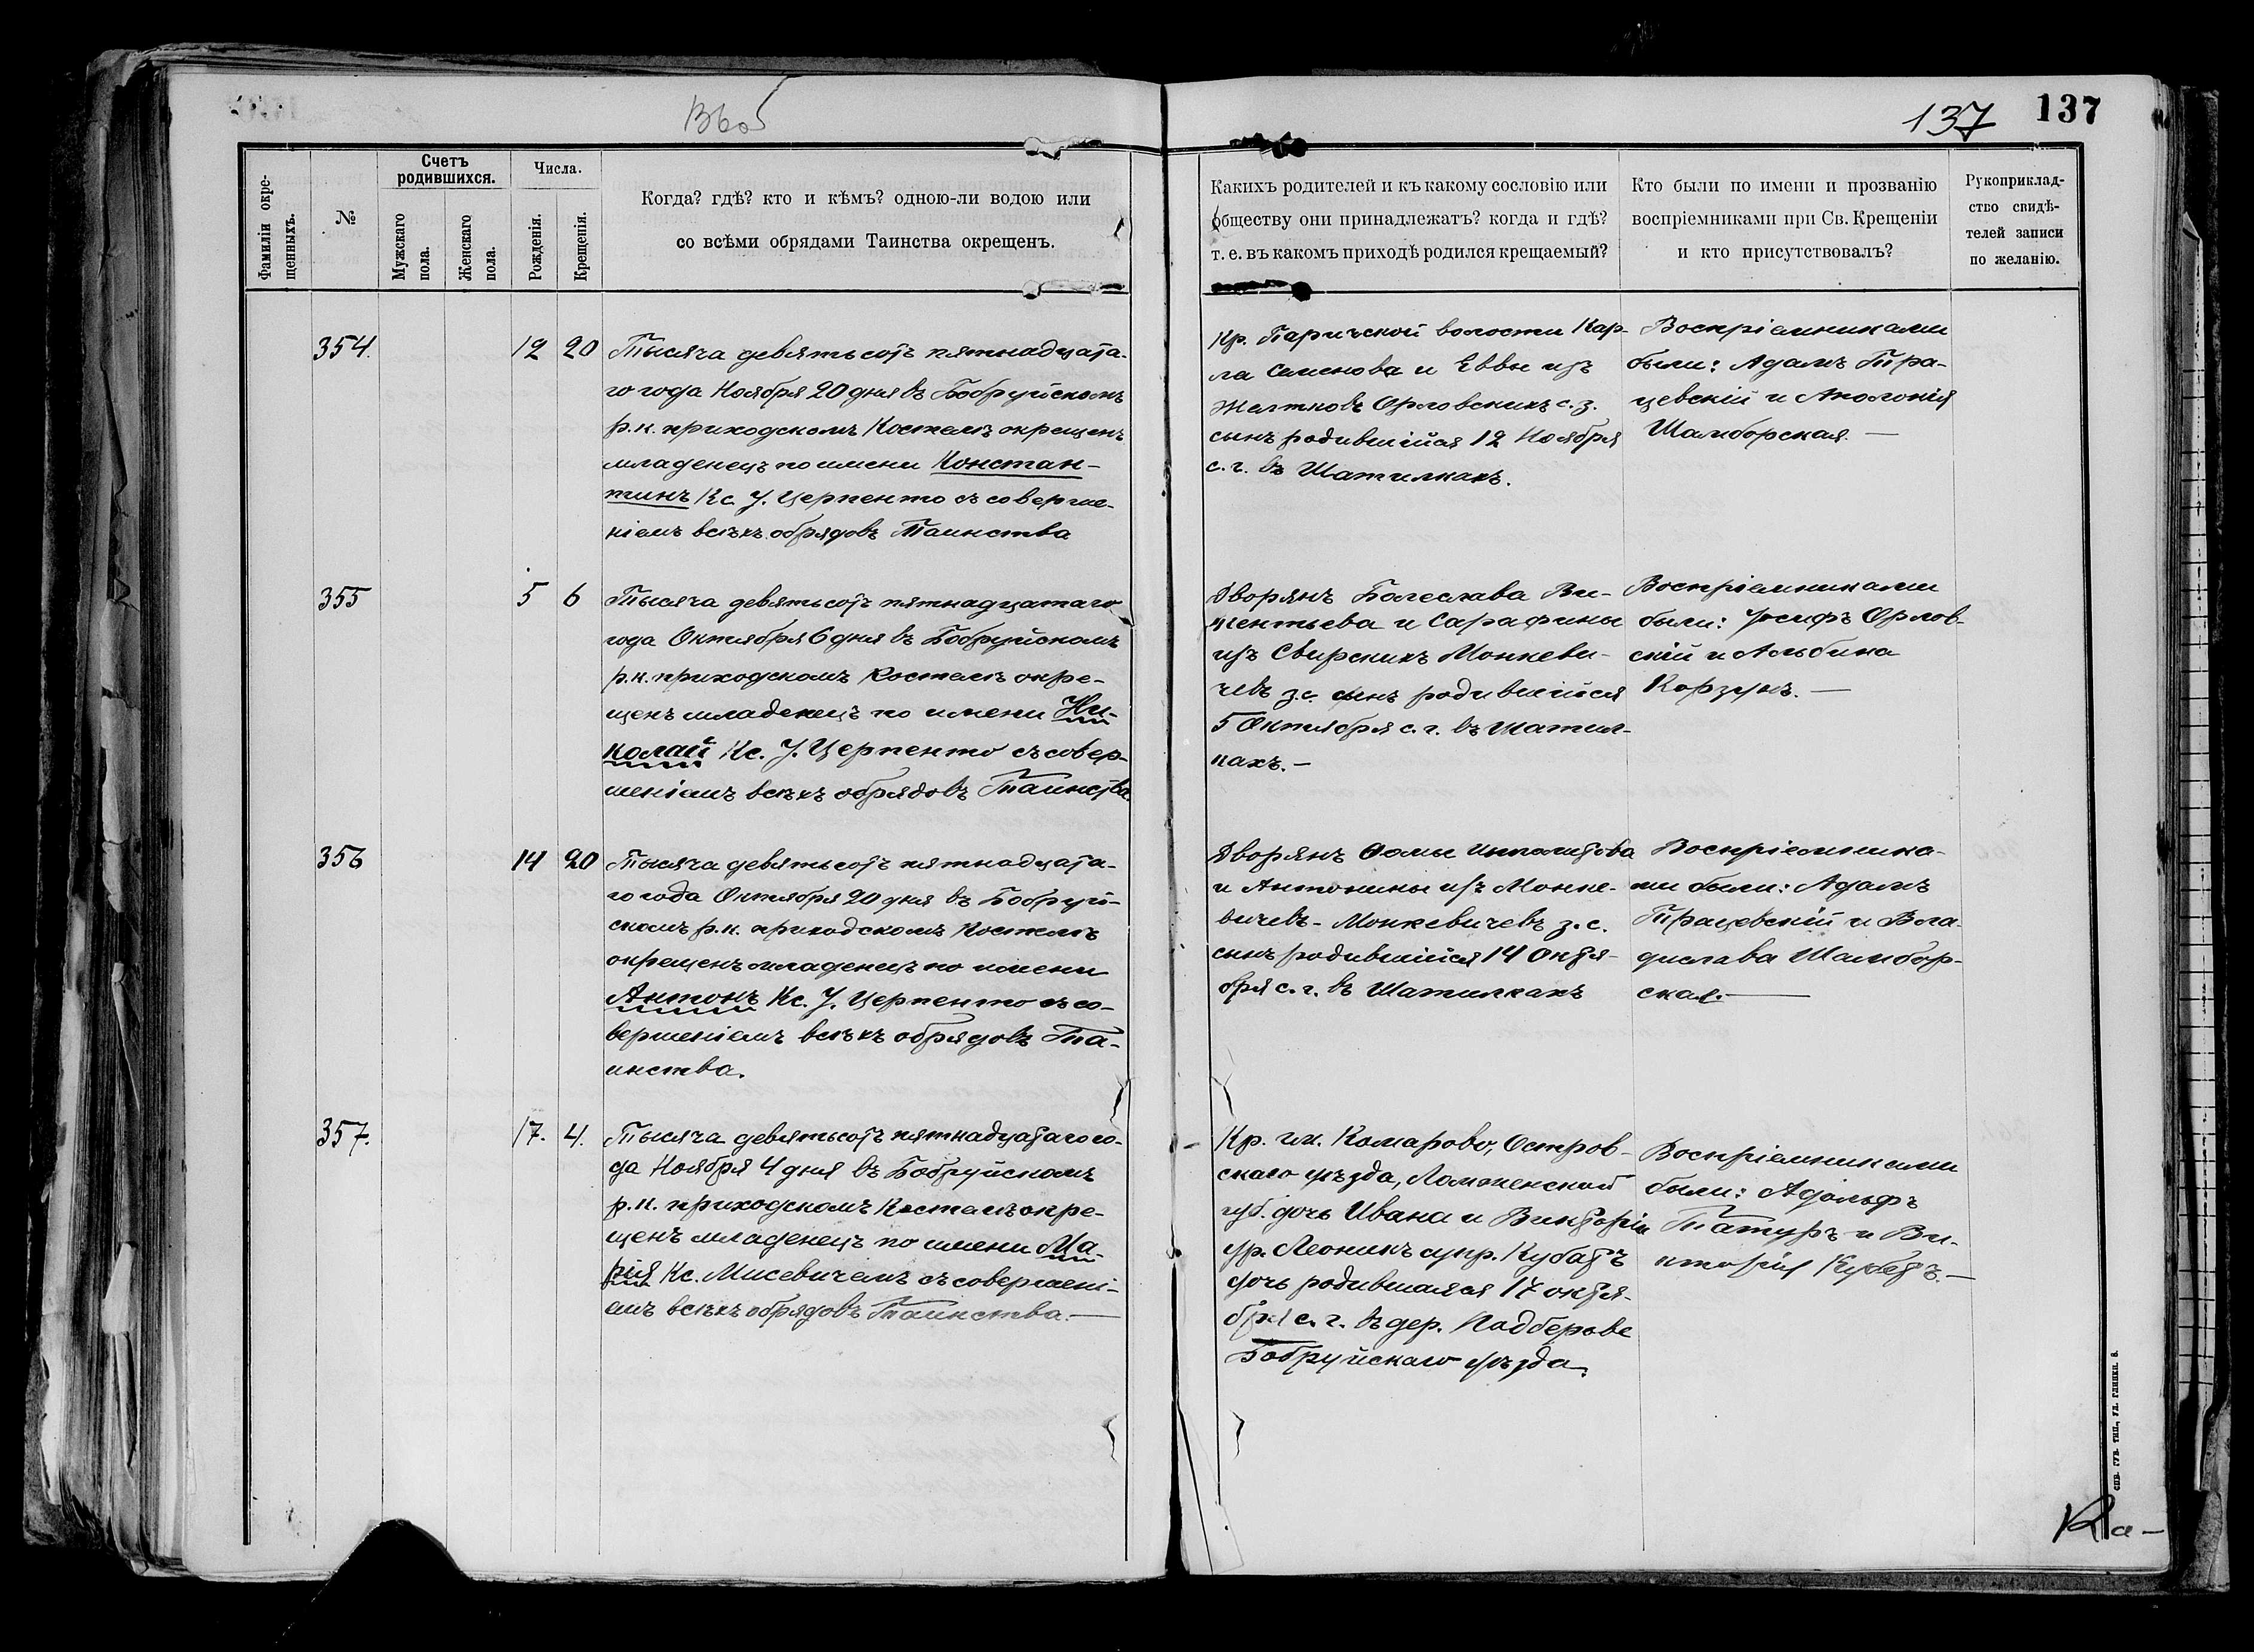 137
137
Фамиліи окре-
щенныхъ.
№
Счетъ
родившихся.
Мужскаго
пола.
Женскаго
пола.
Числа.
Рожденія.
Крещенія.
Когда? гдѣ? кто и кѣмъ? одною-ли водою или
со всѣми обрядами Таинства окрещенъ.
Какихъ родителей и къ какому сословію или
обществу они принадлежатъ? когда и гдѣ?
т. е. въ какомъ приходѣ родился крещаемый?
Кто были по имени и прозванію
воспріемниками при Св. Крещеніи
и кто присутствовалъ?
Рукоприклад-
ство свидѣ-
телей записи
по желанію.
354.
12 20
Тысяча девятьсотъ пятнадцата-
го года Ноября 20 дня въ Бобруйскомъ
р.к. приходскомъ Костелѣ окрещенъ
младенецъ по имени Констан-
тинъ Кс. І. Церпенто съ соверше-
ніемъ всѣхъ обрядовъ Таинства
Кр. Паричской волости Кар-
ла Семенова и Еввы изъ
Желтковъ Орловскихъ с. з.
сынъ родившійся 12 Ноября
с. г. въ Шатилкахъ.
Воспріемниками
были: Адамъ Тра-
цевскій и Аполонія
Шамборская. —
355
5 6
Тысяча девятьсотъ пятнадцатаго
года Октября 6 дня въ Бобруйскомъ
р.к. приходскомъ Костелѣ окре-
щенъ младенецъ по имени Ни-
колай Кс. І. Церпенто съ совер-
шеніемъ всѣхъ обрядовъ Таинства
Дворянъ Болеслава Ви-
кентьева и Сарафины
изъ Свирскихъ Монкеви-
чевъ з.с. сынъ родившійся
5 Октября с. г. въ Шатил-
кахъ. —
Воспріемниками
были: Іосифъ Орлов-
скій и Альбина
Корзунъ. —
356
14 20
Тысяча девятьсотъ пятнадцата-
го года Октября 20 дня въ Бобруй-
скомъ р.к. приходскомъ Костелѣ
окрещенъ младенецъ по имени
Антонъ Кс. І. Церпенто съ со-
вершеніемъ всѣхъ обрядовъ Та-
инства.
Дворянъ Ѳомы Ипполитова
и Антонины изъ Монке-
вичевъ - Монкевичевъ з. с.
сынъ родившійся 14 Октя-
бря с. г. въ Шатилкахъ
Воспріемника-
ми были: Адамъ
Трацевскій и Вла-
дислава Шамбор-
ская. —
357.
17. 4.
Тысяча девятьсотъ пятнадцатаго го-
да Ноября 4 дня въ Бобруйскомъ
р.к. приходскомъ Костелѣ окре-
щенъ младенецъ по имени Ма-
рія Кс. Мисевичемъ съ совершені-
емъ всѣхъ обрядовъ Таинства. —
Кр. гм. Комарово, Остров-
скаго уѣзда, Ломженской
губ. дочь Ивана и Викторіи
ур. Леоникъ супр. Кубатъ
дочь родившаяся 17 октя-
бря с. г. въ дер.
Бобруйскаго уѣзда.
Воспріемниками
были: Адольфъ
Татуръ и Ви-
кторія Кубатъ. —
СПБ. ГУБ. ТИП., УЛ. ГЛИНКИ. 8.